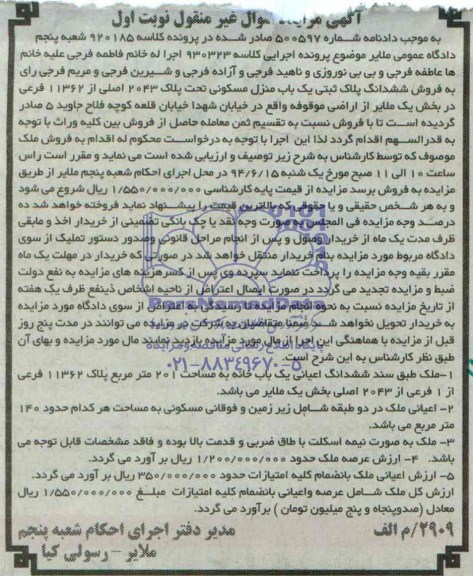 آگهی مزایده اموال غیر منقول نوبت اول
به موجب دادنامه شماره ۵۰۰۵۹۷ صادر شده در پرونده کلاسه ۹۲۰۱۸۵ شعبه پنجم
دادگاه عمومی ملایر موضوع پرونده اجرایی کلاسه ۹۳۰۳۲۳ اجرا له خانم فاطمه فرجی علیه خانم
ها عاطفه فرجی و بی بی نوروزی و ناهید فرجی و آزاده فرجی و شیرین فرجی و مریم فرجی رای
به فروش ششدانگ پلاک ثبتی یک باب منزل مسکونی تحت پلاک ۲۰۴۳ اصلی از ۱۱۳۶۲ فرعی
در بخش یک ملایر از اراضی موقوفه واقع در خیابان شهدا خیابان قلعه کوچه فلاح جاوید ۵ صادر
گردیده است تا با فروش نسبت به تقسیم ثمن معامله حاصل از فروش بین کلیه وراث با توجه
به قدرالسهم اقدام گردد لذا این اجرا با توجه به درخواست محکوم له اقدام به فروش ملک
موصوف که توسط کارشناس به شرح زیر توصیف و ارزیابی شده است می نماید و مقرر است راس
ساعت ۱۰ الی ۱۱ صبح مورخ یک شنبه ۹۴/۶/۱۵ در محل اجرای احکام شعبه پنجم ملایر از طریق
مزایده به فروش برسد مزایده از قیمت پایه کارشناسی ۱/۵۵۰/۰۰۰/۰۰۰ ریال شروع می شود
و به هر شخص حقیقی و یا حقوقی که بالاترین قیمت را پیشنهاد نماید فروخته خواهد شد ده
درصد وجه مزایده فی المجلس به صورت وجه نقد یا چک بانکی تضمینی از خریدار اخذ و مابقی
ظرف مدت یک ماه از خریدار وصول و پس از انجام مراحل قانونی وصدور دستور تملیک از سوی
دادگاه مربوط مورد مزایده بنام خریدار منتقل خواهد شد در صورتی که خریدار در مهلت یک ماه
مقرر بقیه وجه مزایده را پرداخت ننماید سپرده وی پس از کسر هزینه های مزایده به نفع دولت
ضبط و مزایده تجدید می گردد در صورت ایصال اعتراض از ناحیه اشخاص ذینفع ظرف یک هفته
از تاریخ مزایده نسبت به نحوه انجام مزایده تا رسیدگی به اعتراض از سوی دادگاه مورد مزایده
به خریدار تحویل نخواهد شد ضمنا متقاضیان به شرکت در مزایده می توانند در مدت پنج روز
قبل از مزایده با هماهنگی این اجرا از مال مورد مزایده بازدید نمایند مال مورد مزایده و بهای آن
طبق نظر کارشناس به این شرح است.
۰۲۱-۸۸۳۴۹۶۷۰-۵
۱-ملک طبق سند ششدانگ اعیانی یک باب خانه به مساحت ۲۰۱ متر مربع پلاک ۱۱۳۶۲ فرعی
از ۱ فرعی از ۲۰۴۳ اصلی بخش یک ملایر می باشد.
۲- اعیانی ملک در دو طبقه شامل زیر زمین و فوقانی مسکونی به مساحت هر کدام حدود ۱۴۰
متر مربع می باشد.
۳- ملک به صورت نیمه اسکلت با طاق ضربی و قدمت بالا بوده و فاقد مشخصات قابل توجه می
باشد. ۴- ارزش عرصه ملک حدود ۱/۲۰۰/۰۰۰/۰۰۰ ریال بر آورد می گردد.
۵- ارزش اعیانی ملک بانضمام کلیه امتیازات حدود ۳۵۰/۰۰۰/۰۰۰ ریال بر آورد می گردد.
ارزش کل ملک شامل عرصه واعیانی بانضمام کلیه امتیازات مبلغ ۱/۵۵۰/۰۰۰/۰۰۰ ریال
معادل (صدوپنجاه و پنج میلیون تومان ) برآورد می گردد.
۲۹۰۹/م الف
مدیر دفتر اجرای احکام شعبه پنجم
ملایر - رسولی کیا